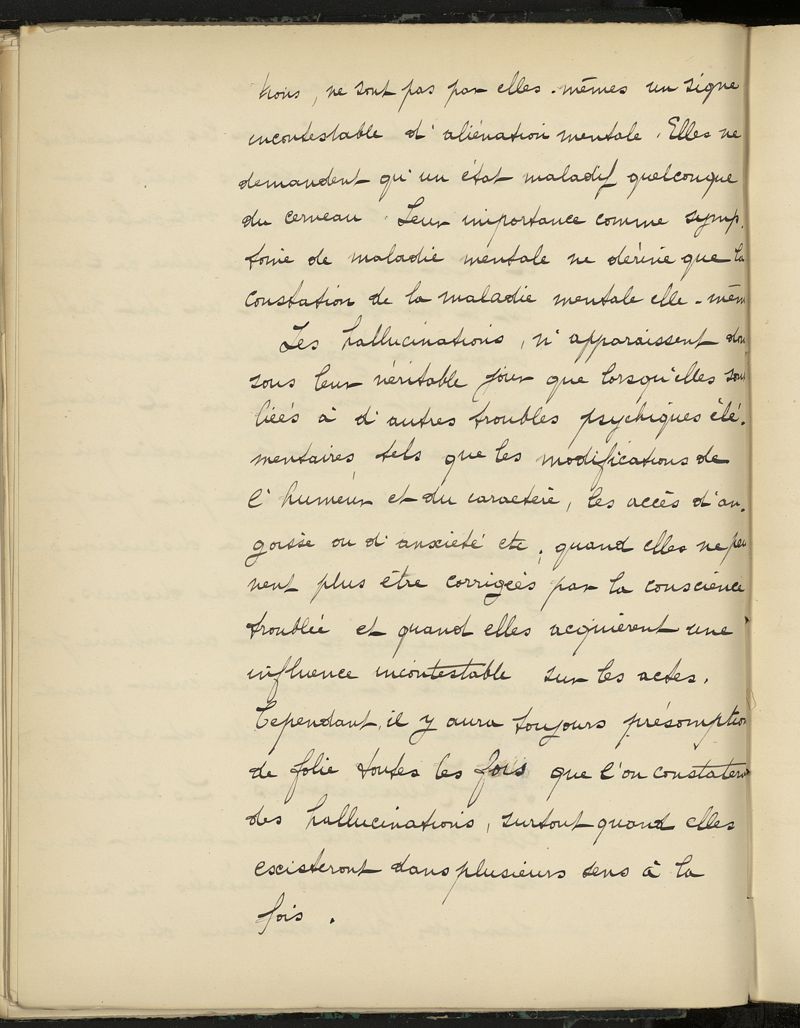 tions, ne sont pas par elles-mêmes un signe
incontestable d'aliénation mentale. Elles ne
demandent qu'un état maladif quelconque
du cerveau. Leur importance comme symp-
tome de maladie mentale ne dérive que la
constation de la maladie mentale elle-mêm
Les hallucinations, n'apparaissent don
sous leur véritable jour que lorsqu'elles son
liées à d'autres troubles psychiques élé-
mentaires tels que les modifications de
l'humeur et du caractère, les accès d'an-
goisse ou d'anxiété etc, quand elles ne peu
vent plus être corrigées par la conscience
troublée et quand elles acquièrent une
influence incontestable sur les actes.
Cependant, il y aura toujours présomption
de folie toutes les fois que l'on constatera
des hallucinations, surtout quand elles
existeront dans plusieurs sens à la
fois.